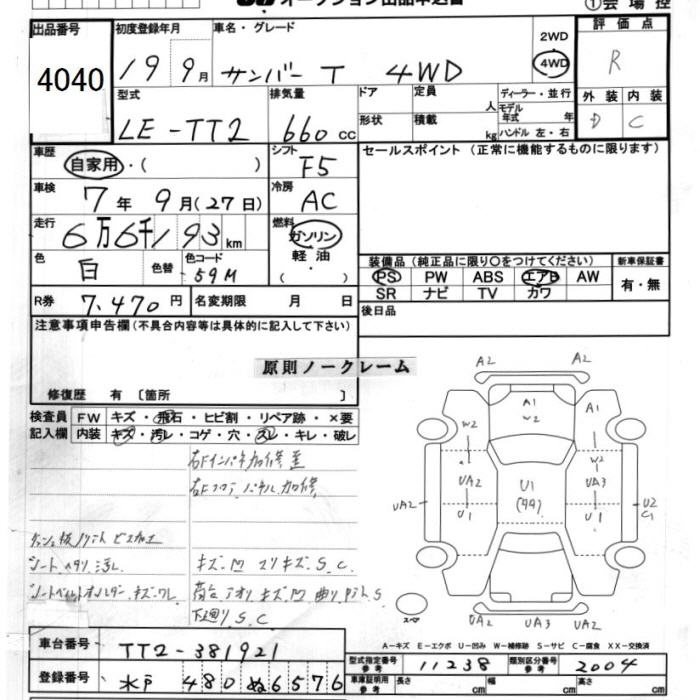 オークション出品申込書
①会場控
出品番号 4040
初度登録年月 19 9月
車名・グレード サンバー T 4WD
2WD
4WD
評価点 R
外装 D 内装 C
型式 LE-TT2
排気量 660 cc
ドア
形状
定員 人
積載 kg
ディーラー・並行
モデル年式 年
ハンドル 左・右
車歴 自家用・( )
シフト F5
セールスポイント (正常に機能するものに限ります)
車検 7年 9月(27日)
冷房 AC
走行 6万6千193km
燃料 ガソリン
軽油・( )
色 白
色替
色コード 59M
装備品(純正品に限り○をつけてください)
新車保証書
PS PW ABS エアB AW
有・無
SR ナビ TV カワ
R券 7,470円
名変期限 月 日
後日品
注意事項申告欄(不具合内容等は具体的に記入して下さい)
原則ノークレーム
修復歴 有〔箇所 〕
検査員 FW キズ・飛石・ヒビ割・リペア跡・×要
記入欄 内装 キズ・汚レ・コゲ・穴・スレ・キレ・破レ
右Fインパネ加修歪
右Fフロアパネル加修
ビス加工
シート ヘタリ 汚レ
キズ 凹 スリキズ S.C.
シートベルトホルダー キズ ワレ
荷台アオリ キズ 凹 曲り S
下廻り S.C
A2
A2
A2
A1
W2
A1
W2
W2
UA2
U1
UA2
U1
(44)
UA3
U1
U2
C1
スペア
UA2
UA3
UA2
A-キズ E-エクボ U-凹み W-補修跡 S-サビ C-腐食 XX-交換済
車台番号 TT2-381921
登録番号 水戸 480 ぬ 6576
型式指定番号 参考 11238
類別区分番号 参考 2004
車庫証明用 参考 長さ cm 幅 cm 高さ cm